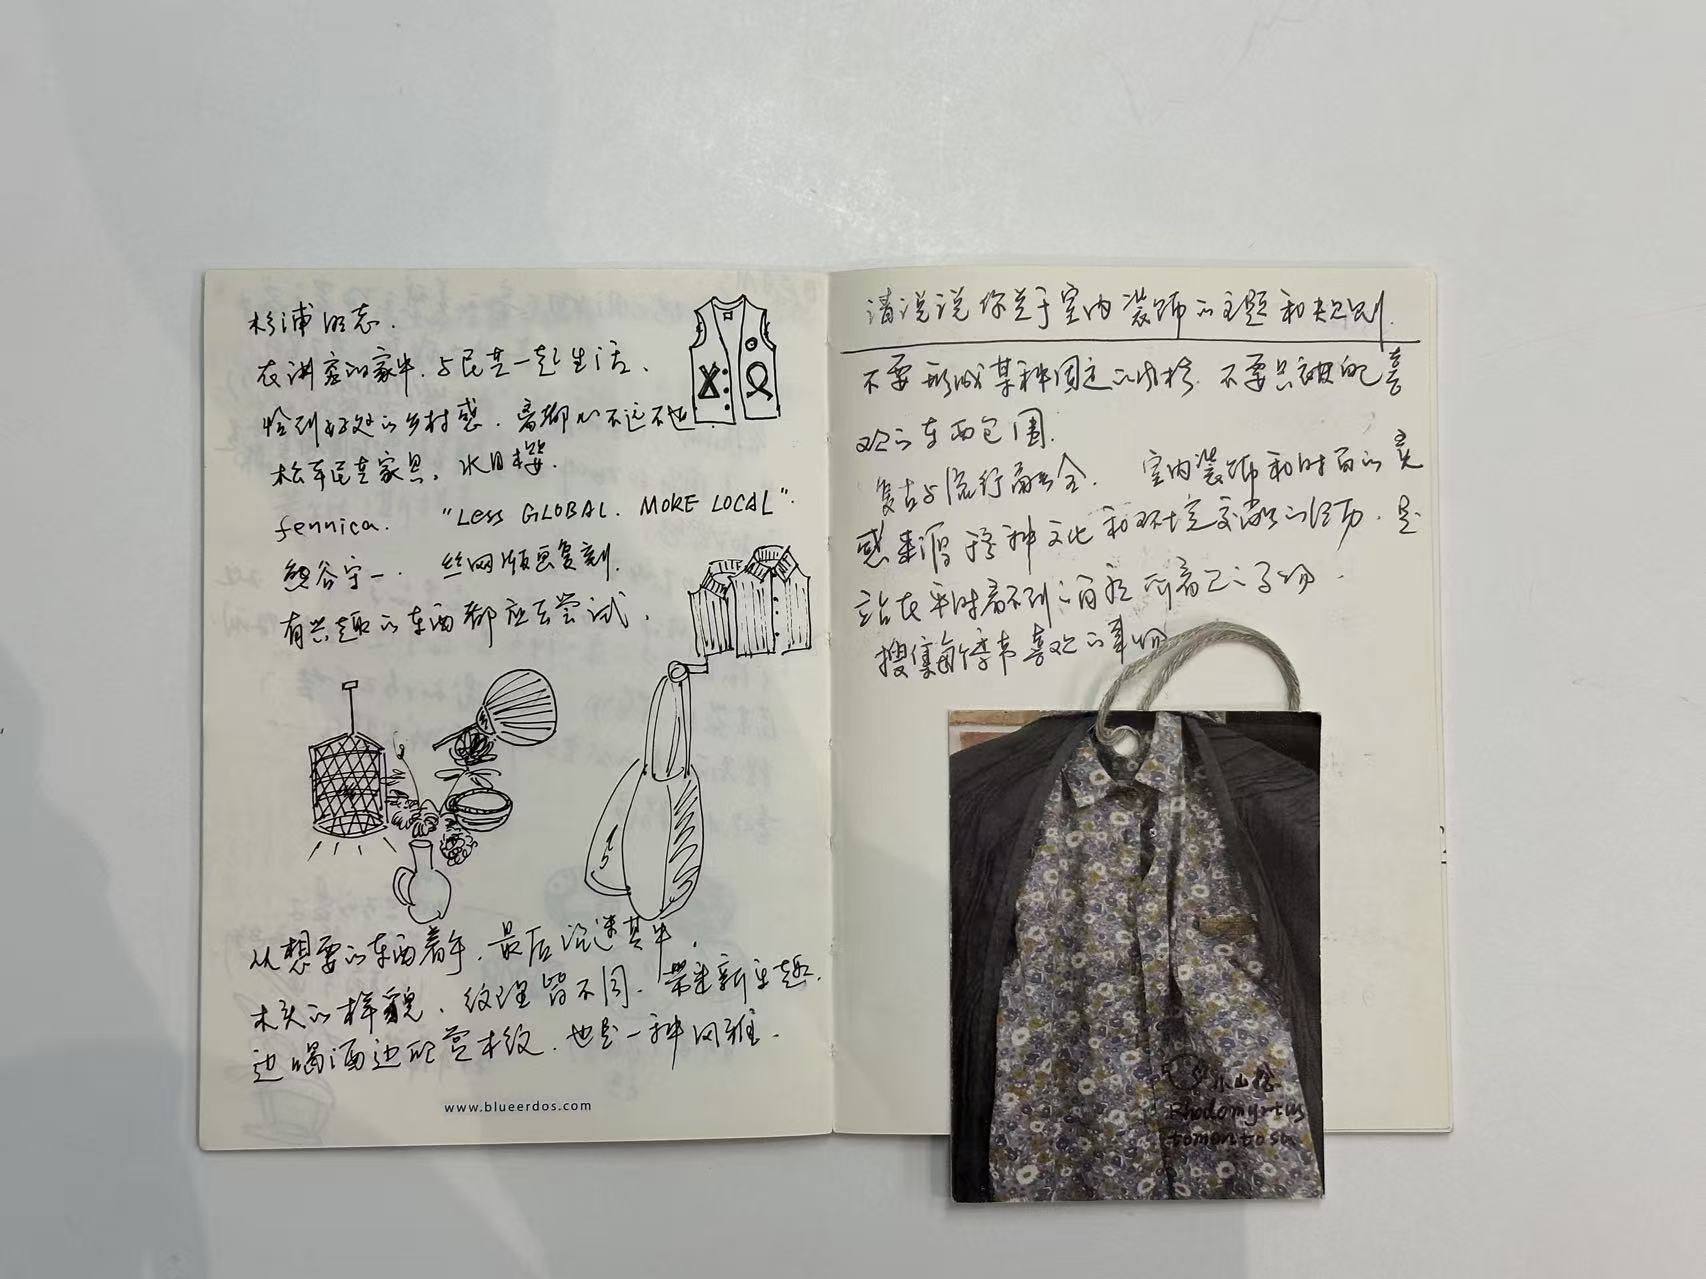 杉浦明志.
在讲究的家中,与民艺一起生活、
恰到好处的乡村感.离都心不远不近
松本民艺家具,水目樱.
fennica. "LESS GLOBAL. MORE LOCAL".
熊谷守一. 丝网版画复刻.
有兴趣的东西都应去尝试.
从想要的东西着手,最后沉迷其中.
木头的样貌、纹理皆不同.带来新生趣.
边喝酒边欣赏木纹.也是一种风雅.
www.blueerdos.com
请说说你关于室内装饰的主题和规则.
不要形成某种固定的风格.不要只被自己喜
欢的东西包围.
复古与流行融合. 室内装饰和时尚的灵
感来源于各种文化和环境交融的经历.是
站在平时看不到的角度所看到的事物.
搜集每个季节喜欢的事物
小山稔
Rhodomyrtus
tomentosa